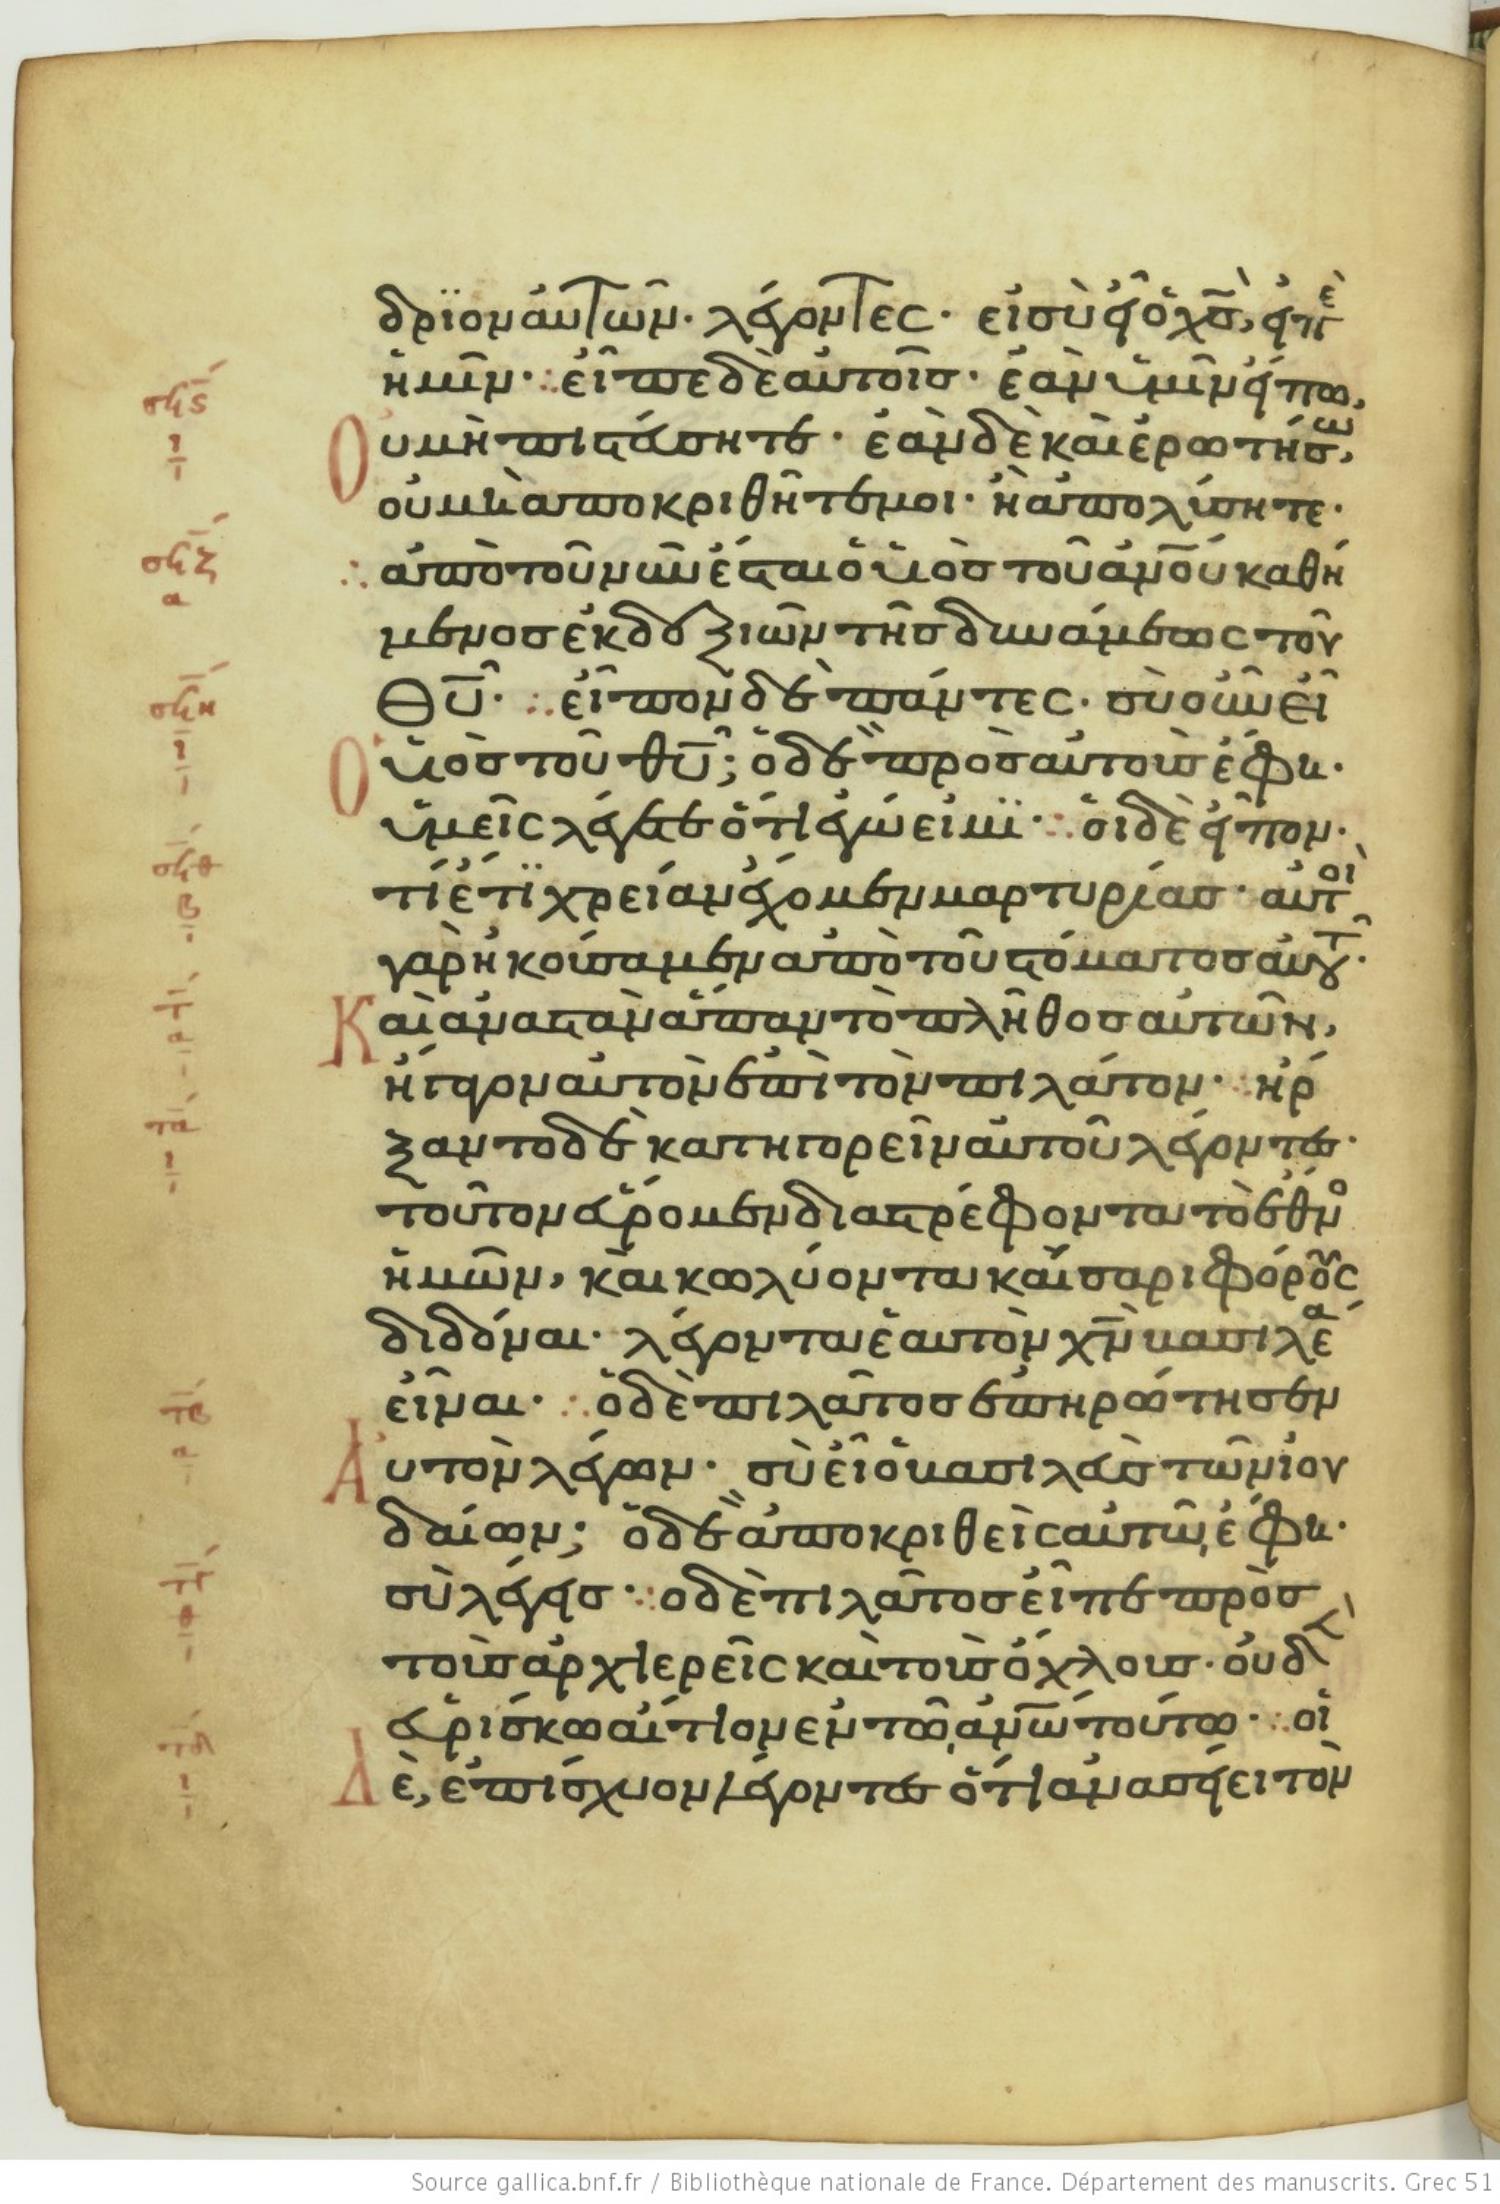 δριον αὐτῶν· λέγοντες· εἰ σὺ εἶ ὁ χς̅, εἰπὲ
ἡμῖν· ∴ εἶπε δὲ αὐτοῖς· ἐὰν ὑμῖν εἴπω,
Οὐ μὴ πιστεύσητε· ἐὰν δὲ καὶ ἐρωτήσω,
οὐ μὴ ἀποκριθῆτέ μοι· ἢ ἀπολύσητε·
∴ ἀπὸ τοῦ νῦν ἔσται ὁ υἱὸς τοῦ ἀνο̅υ καθή
μενος ἐκ δεξιῶν τῆς δυνάμεως τοῦ
θυ̅· ∴ εἶπον δὲ πάντες· σὺ οὖν εἶ
Ὁ υἱὸς τοῦ θυ̅; ὁ δὲ πρὸς αὐτοὺς ἔφη·
ὑμεῖς λέγετε ὅτι ἐγώ εἰμϊ· ∴ οἱ δὲ εἶπον·
τί ἔτϊ χρείαν ἔχομεν μαρτυρίας· αὐτοὶ
γὰρ ἠκούσαμεν ἀπὸ τοῦ στόματος αὐτοῦ·
Καὶ ἀναστὰν ἅπαν τὸ πλῆθος αὐτῶν,
ἤγαγον αὐτὸν ἐπὶ τὸν πιλάτον· ∴ ἤρ
ξαντο δὲ κατηγορεῖν αὐτοῦ λέγοντες·
τοῦτον εὕρομεν διαστρέφοντα τὸ ἔθνο
ἡμῶν, καὶ κωλύοντα καίσαρι φόρους
διδόναι· λέγοντα ἑαυτὸν χν̅ βασιλέα
εἶναι· ∴ ὁ δὲ πιλᾶτος ἐπηρώτησεν
Αὐτὸν λέγων· σὺ εἶ ὁ βασιλεὺς τῶν ἰου
δαίων; ὁ δὲ ἀποκριθεὶς αὐτῶ, ἔφη·
σὺ λέγεις· ∴ ο δὲ πιλᾶτος εἶπε πρὸς
τοὺς ἀρχιερεῖς καὶ τοὺς ὄχλους· οὐδὲν
εὑρίσκω αἴτιον εν τῶ, ἀνω̅ τούτω· ∴ οἱ
Δὲ, ἐπίσχυον λέγοντες ὅτι ἀνασείει τὸν
σϟϛ
ι
σϟζ
α
σϟη
ι
σϟθ
β
τ
α
τα
ι
τβ
α
τγ
θ
τδ
ι
Source gallica.bnf.fr / Bibliothèque nationale de France. Département des manuscrits. Grec 51